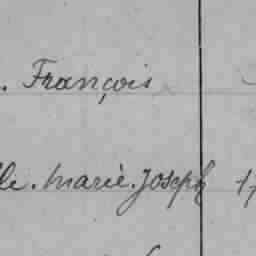 . François
le. Marie. Joseph 17